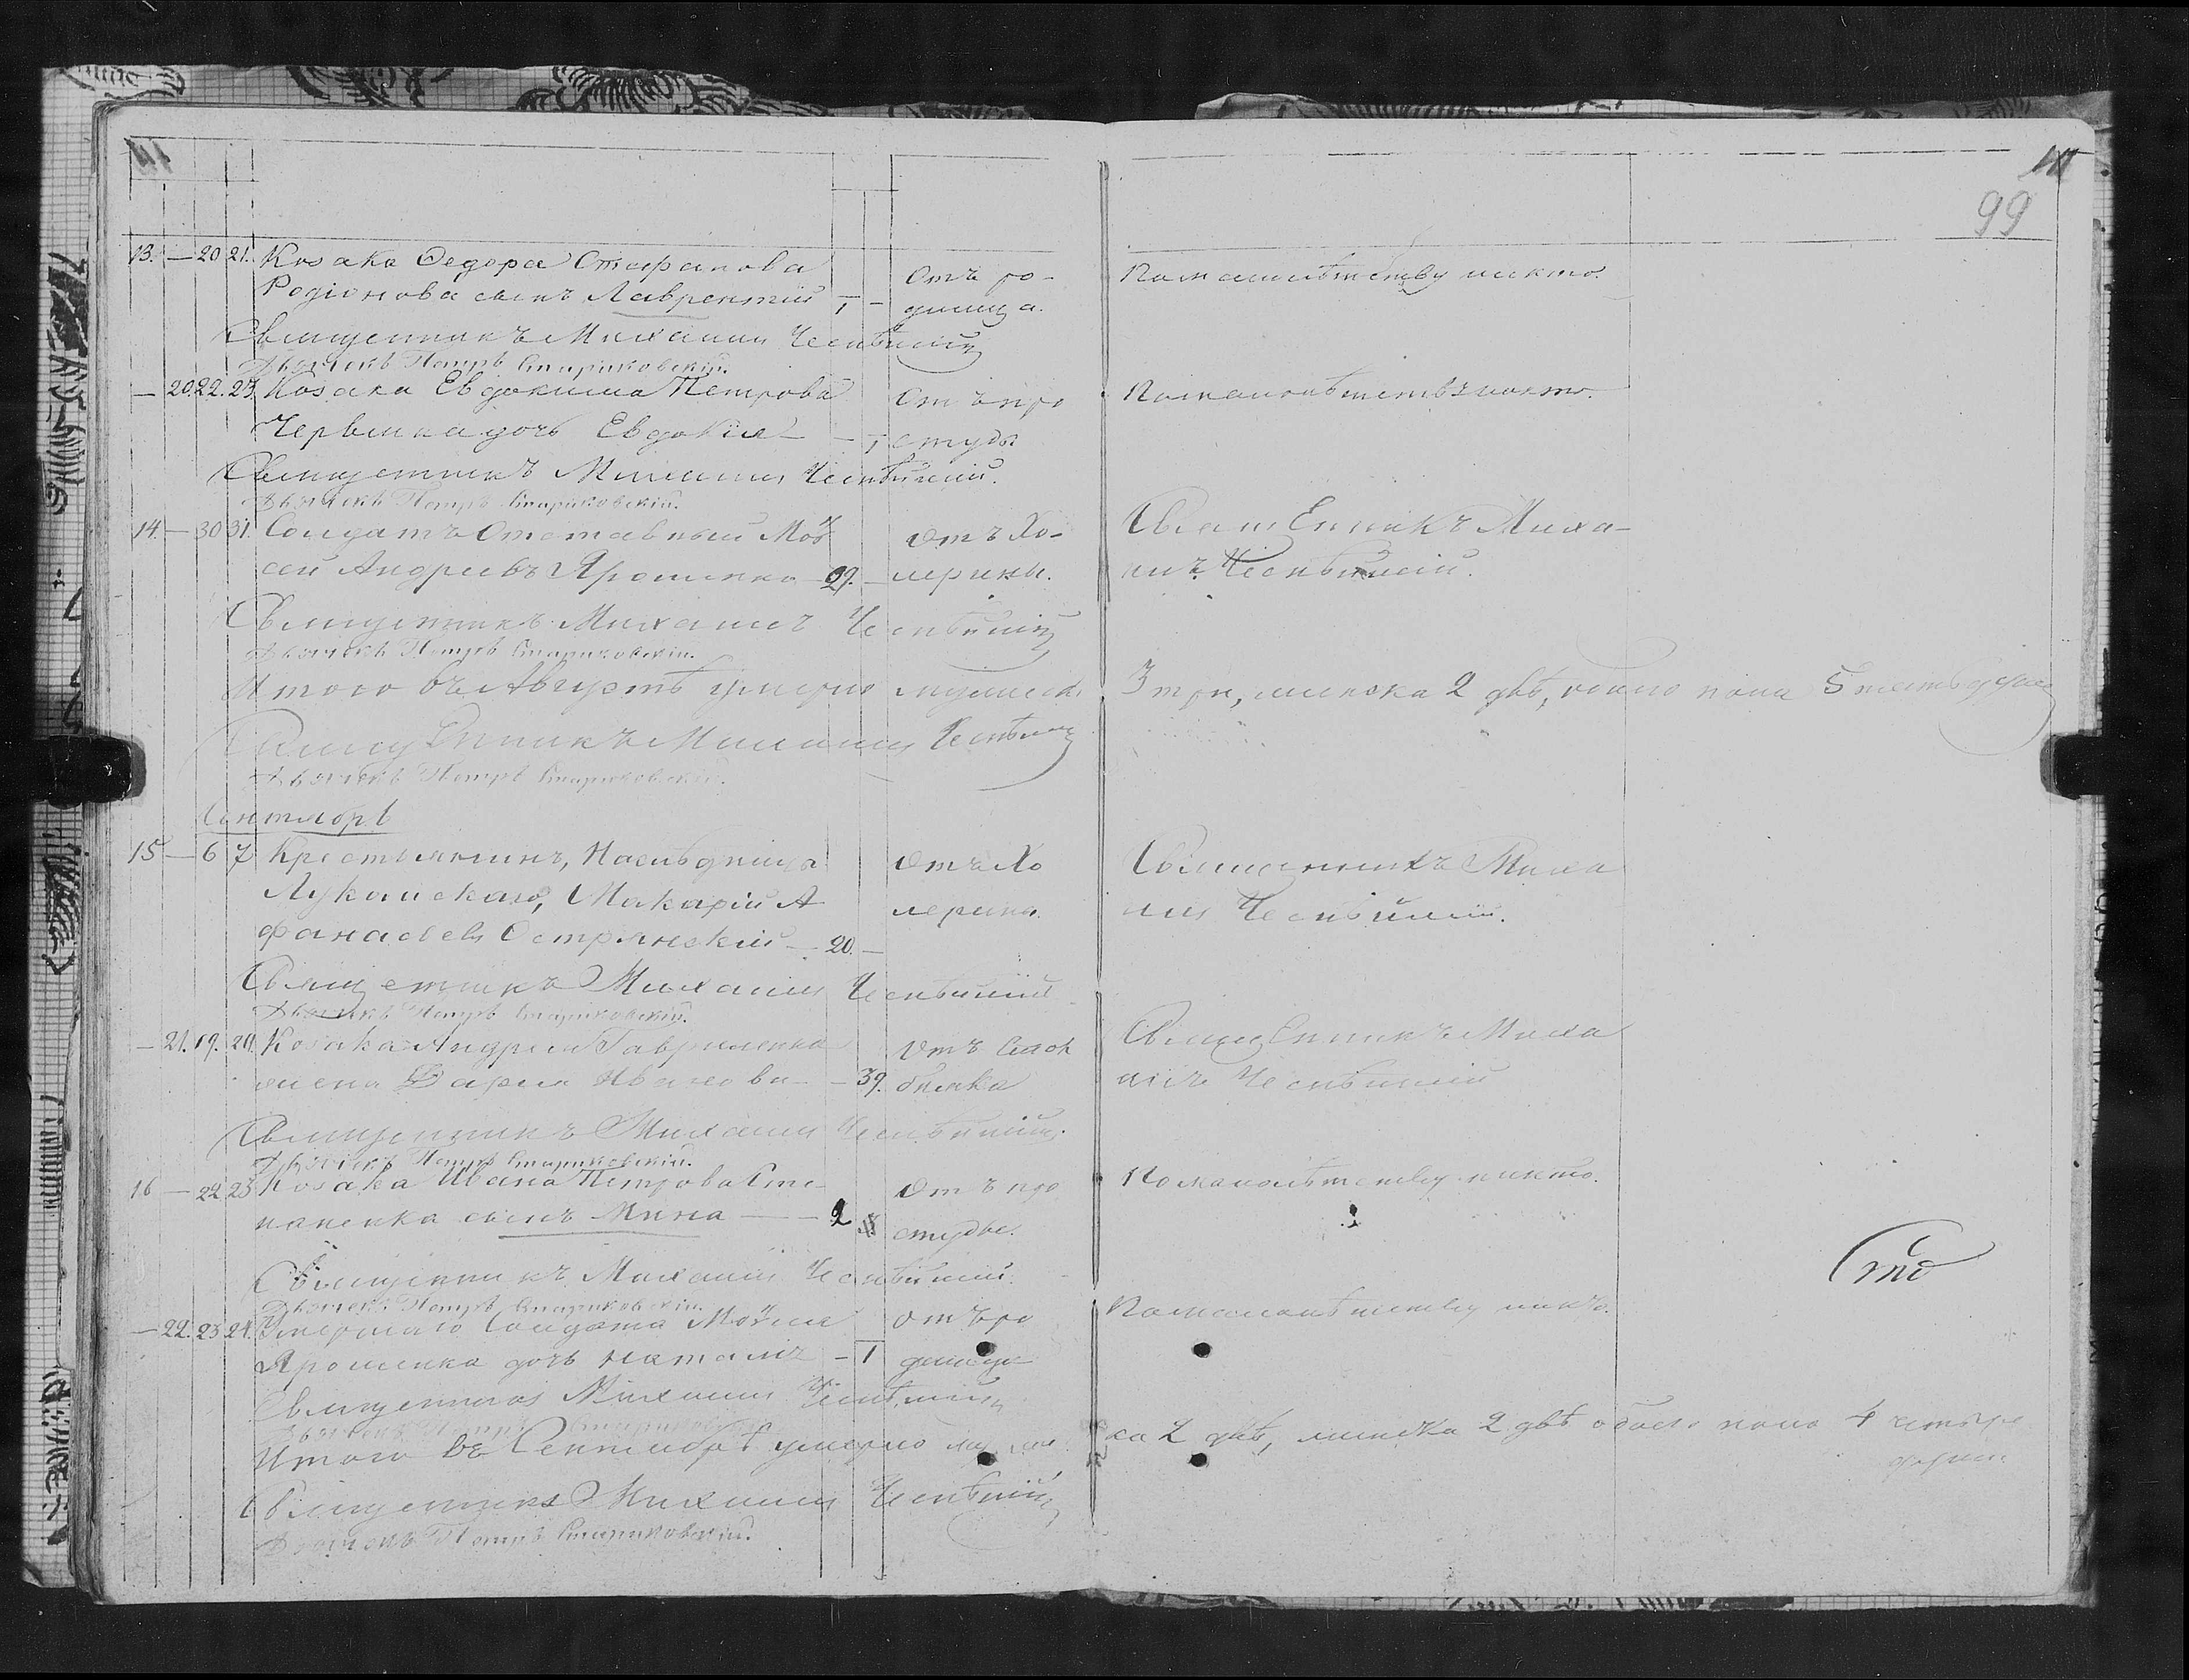 99
13. — 20 21. Козака Ѳедора Стефанова
Родіонова сынъ Лаврентій 1 — Отъ родимца. По малолѣтству никто.
Священникъ Михаилъ
Дьячекъ Петръ Стариковскій.
— 20. 22. 23. Козака Евдокима Петрова
Червяка дочь Евдокія — 1 Отъ простуды По малолѣтству никто.
Священникъ Михаилъ
Дьячекъ Петръ Стариковскій.
14. — 30 31. Солдатъ Отставный Мой
сей Андреевъ Ярошенко 29. — Отъ Холерины. Священникъ Михаилъ
Священникъ Михаилъ
Дьячекъ Петръ Стариковскій.
Итого въ Августѣ умерло мужеска 3 три, женска 2 двѣ, обоего пола 5 пять душъ
Священникъ Михаилъ
Дьячекъ Петръ Стариковскій.
Сентябрь
15 — 6 7 Крестьянинъ, Наслѣдница
Лукомскаго, Макарій А
фанасьевъ Острянскій — 20. — Отъ Холерины. Священникъ Михаилъ
Священникъ Михаилъ
Дьячекъ Петръ Стариковскій.
— 21. 19. 20. Козака Андрея Гавриленка
жена Дарія Иванова — 39. Отъ Священникъ Михаилъ
Священникъ Михаилъ
Дьячекъ Петръ Стариковскій.
16 — 22 23 Козака Ивана Петрова Сте
паненка сынъ Мина — 2 Отъ простуды. По малолѣтству никто.
Священникъ Михаилъ
Дьячекъ Петръ Стариковскій.
— 22. 23 24. Умершаго Солдата Мойсея
Ярошенка дочь Наталія — 1 Отъ родимца По малолѣтству никто.
Священникъ Михаилъ
Дьячекъ Петръ Стариковскій.
Итого въ Сентябрѣ умерло мужеска 2 двѣ, женска 2 двѣ обоего пола 4 четыре
души.
Священникъ Михаилъ
Дьячекъ Петръ Стариковскій.